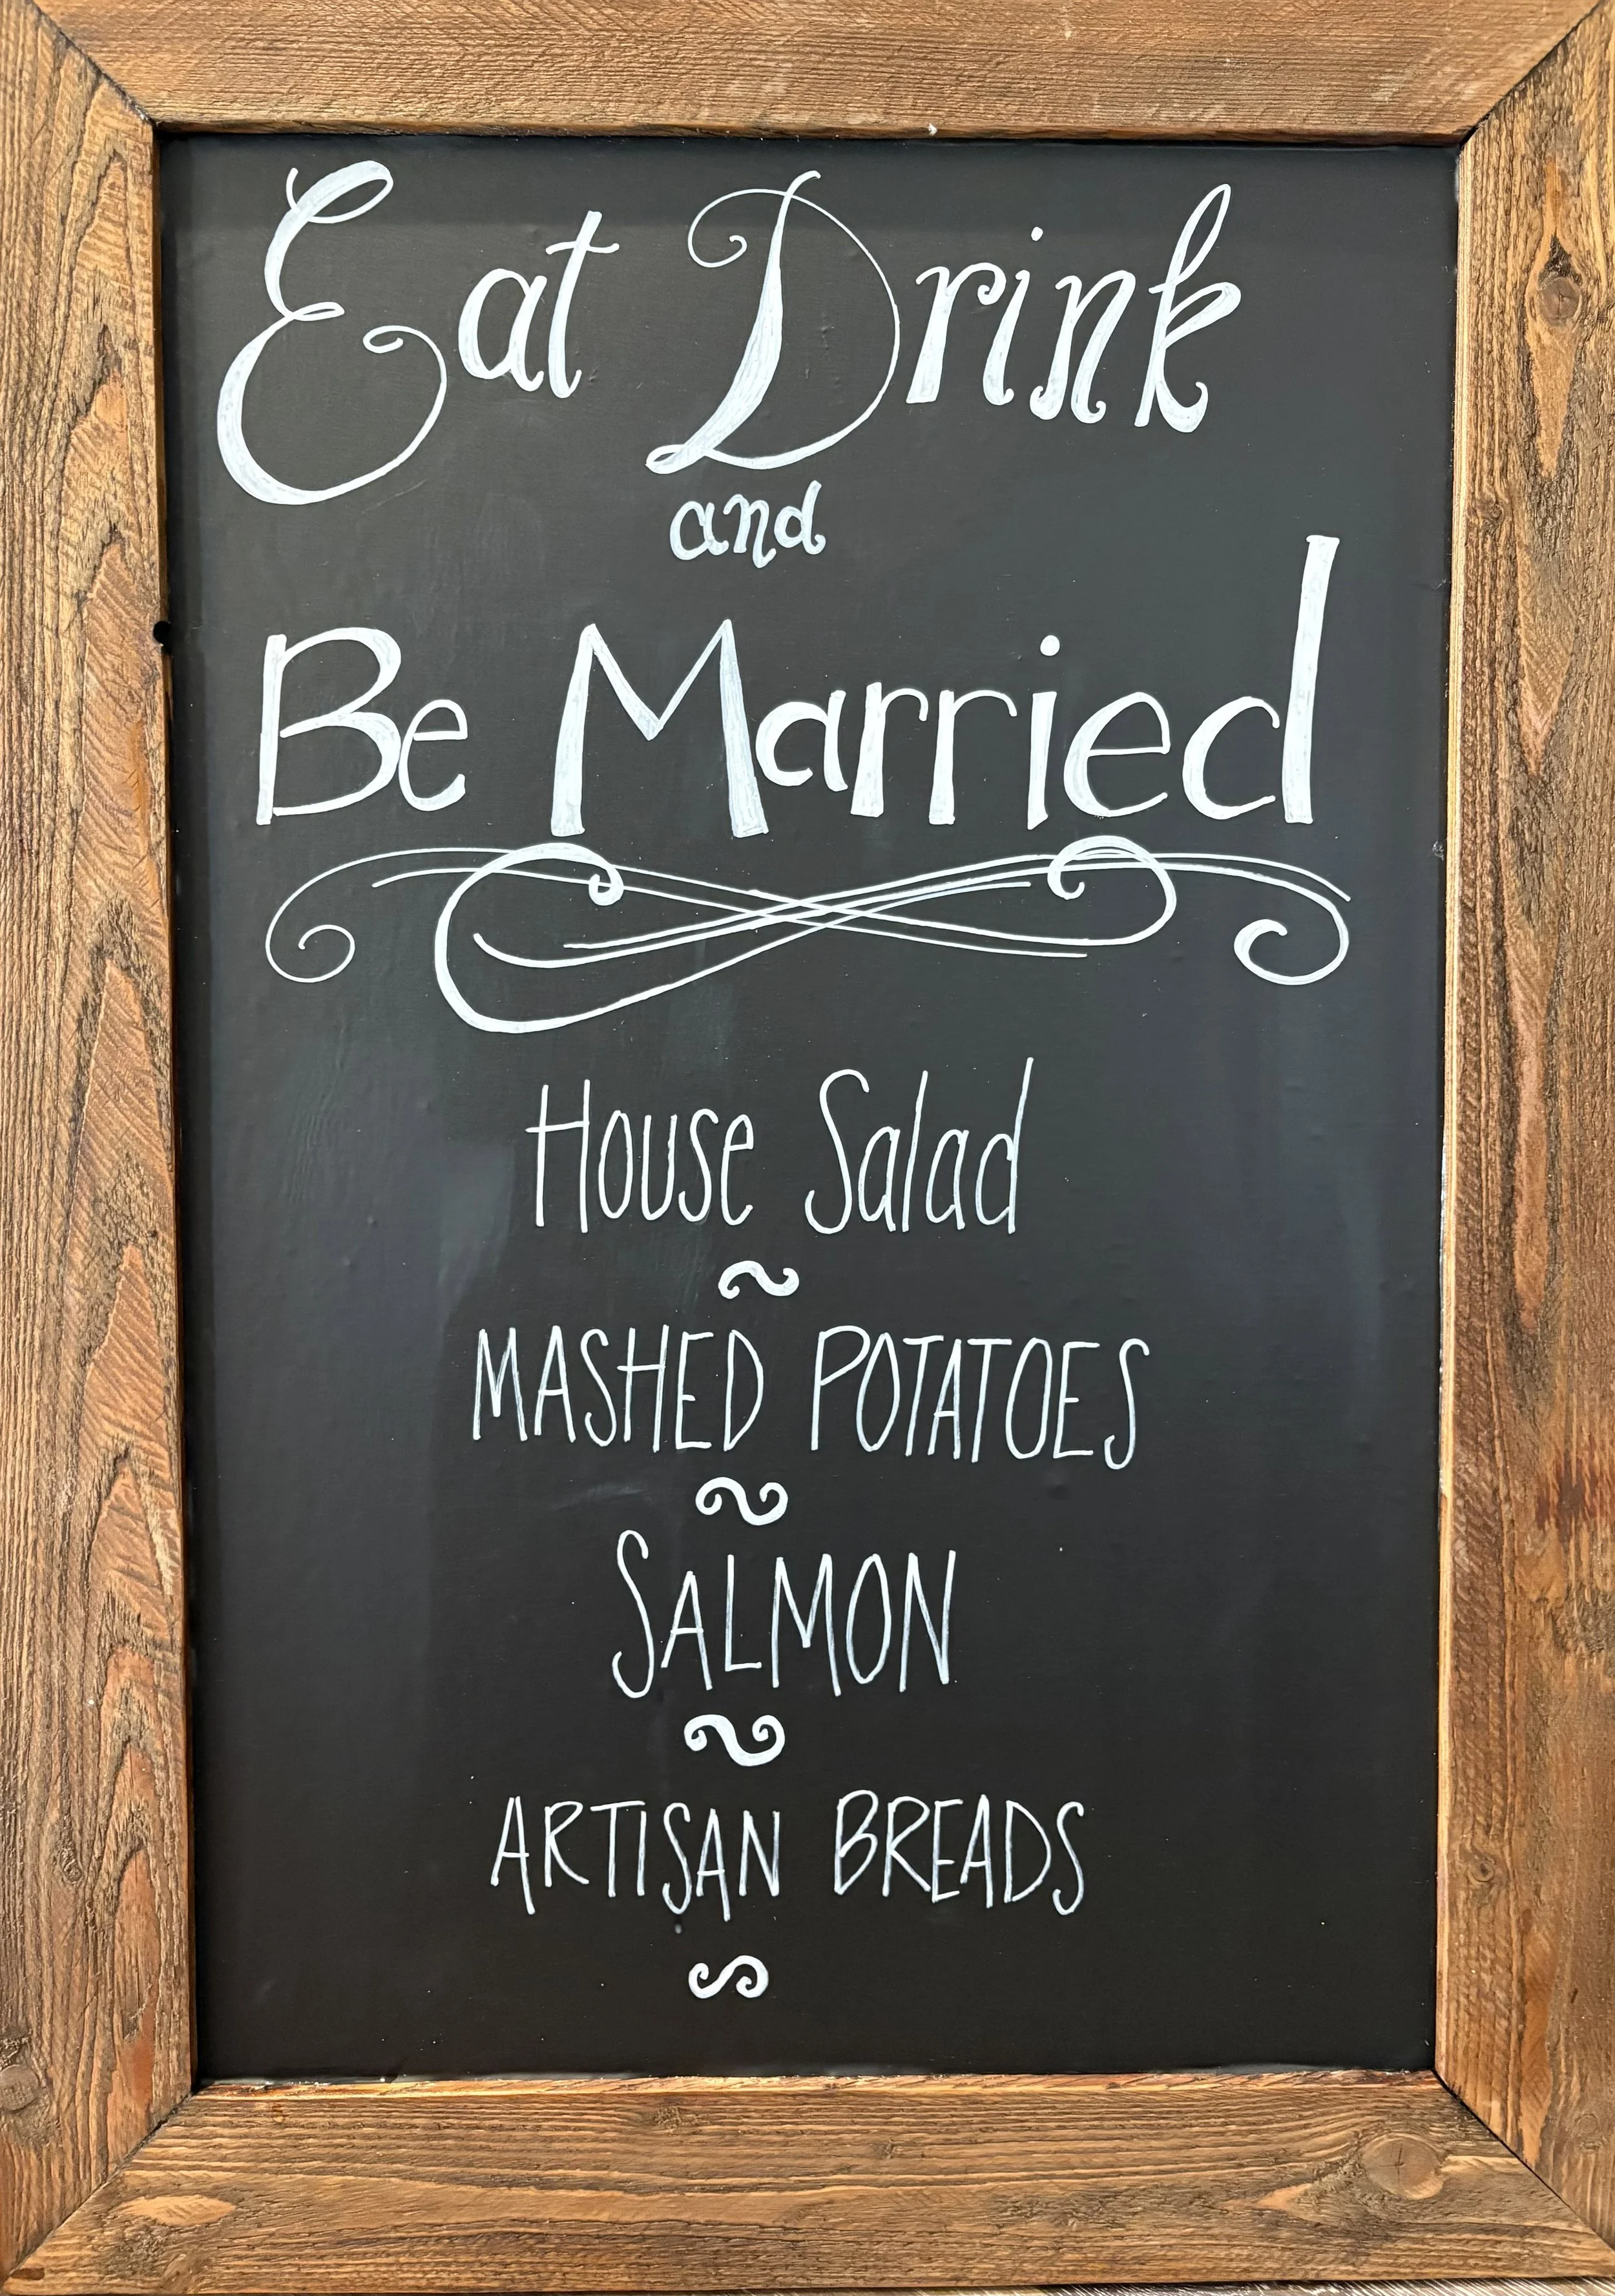 Eat Drink
and
Be Married
House Salad
~
MASHED POTATOES
~
SALMON
~
ARTISAN BREADS
~